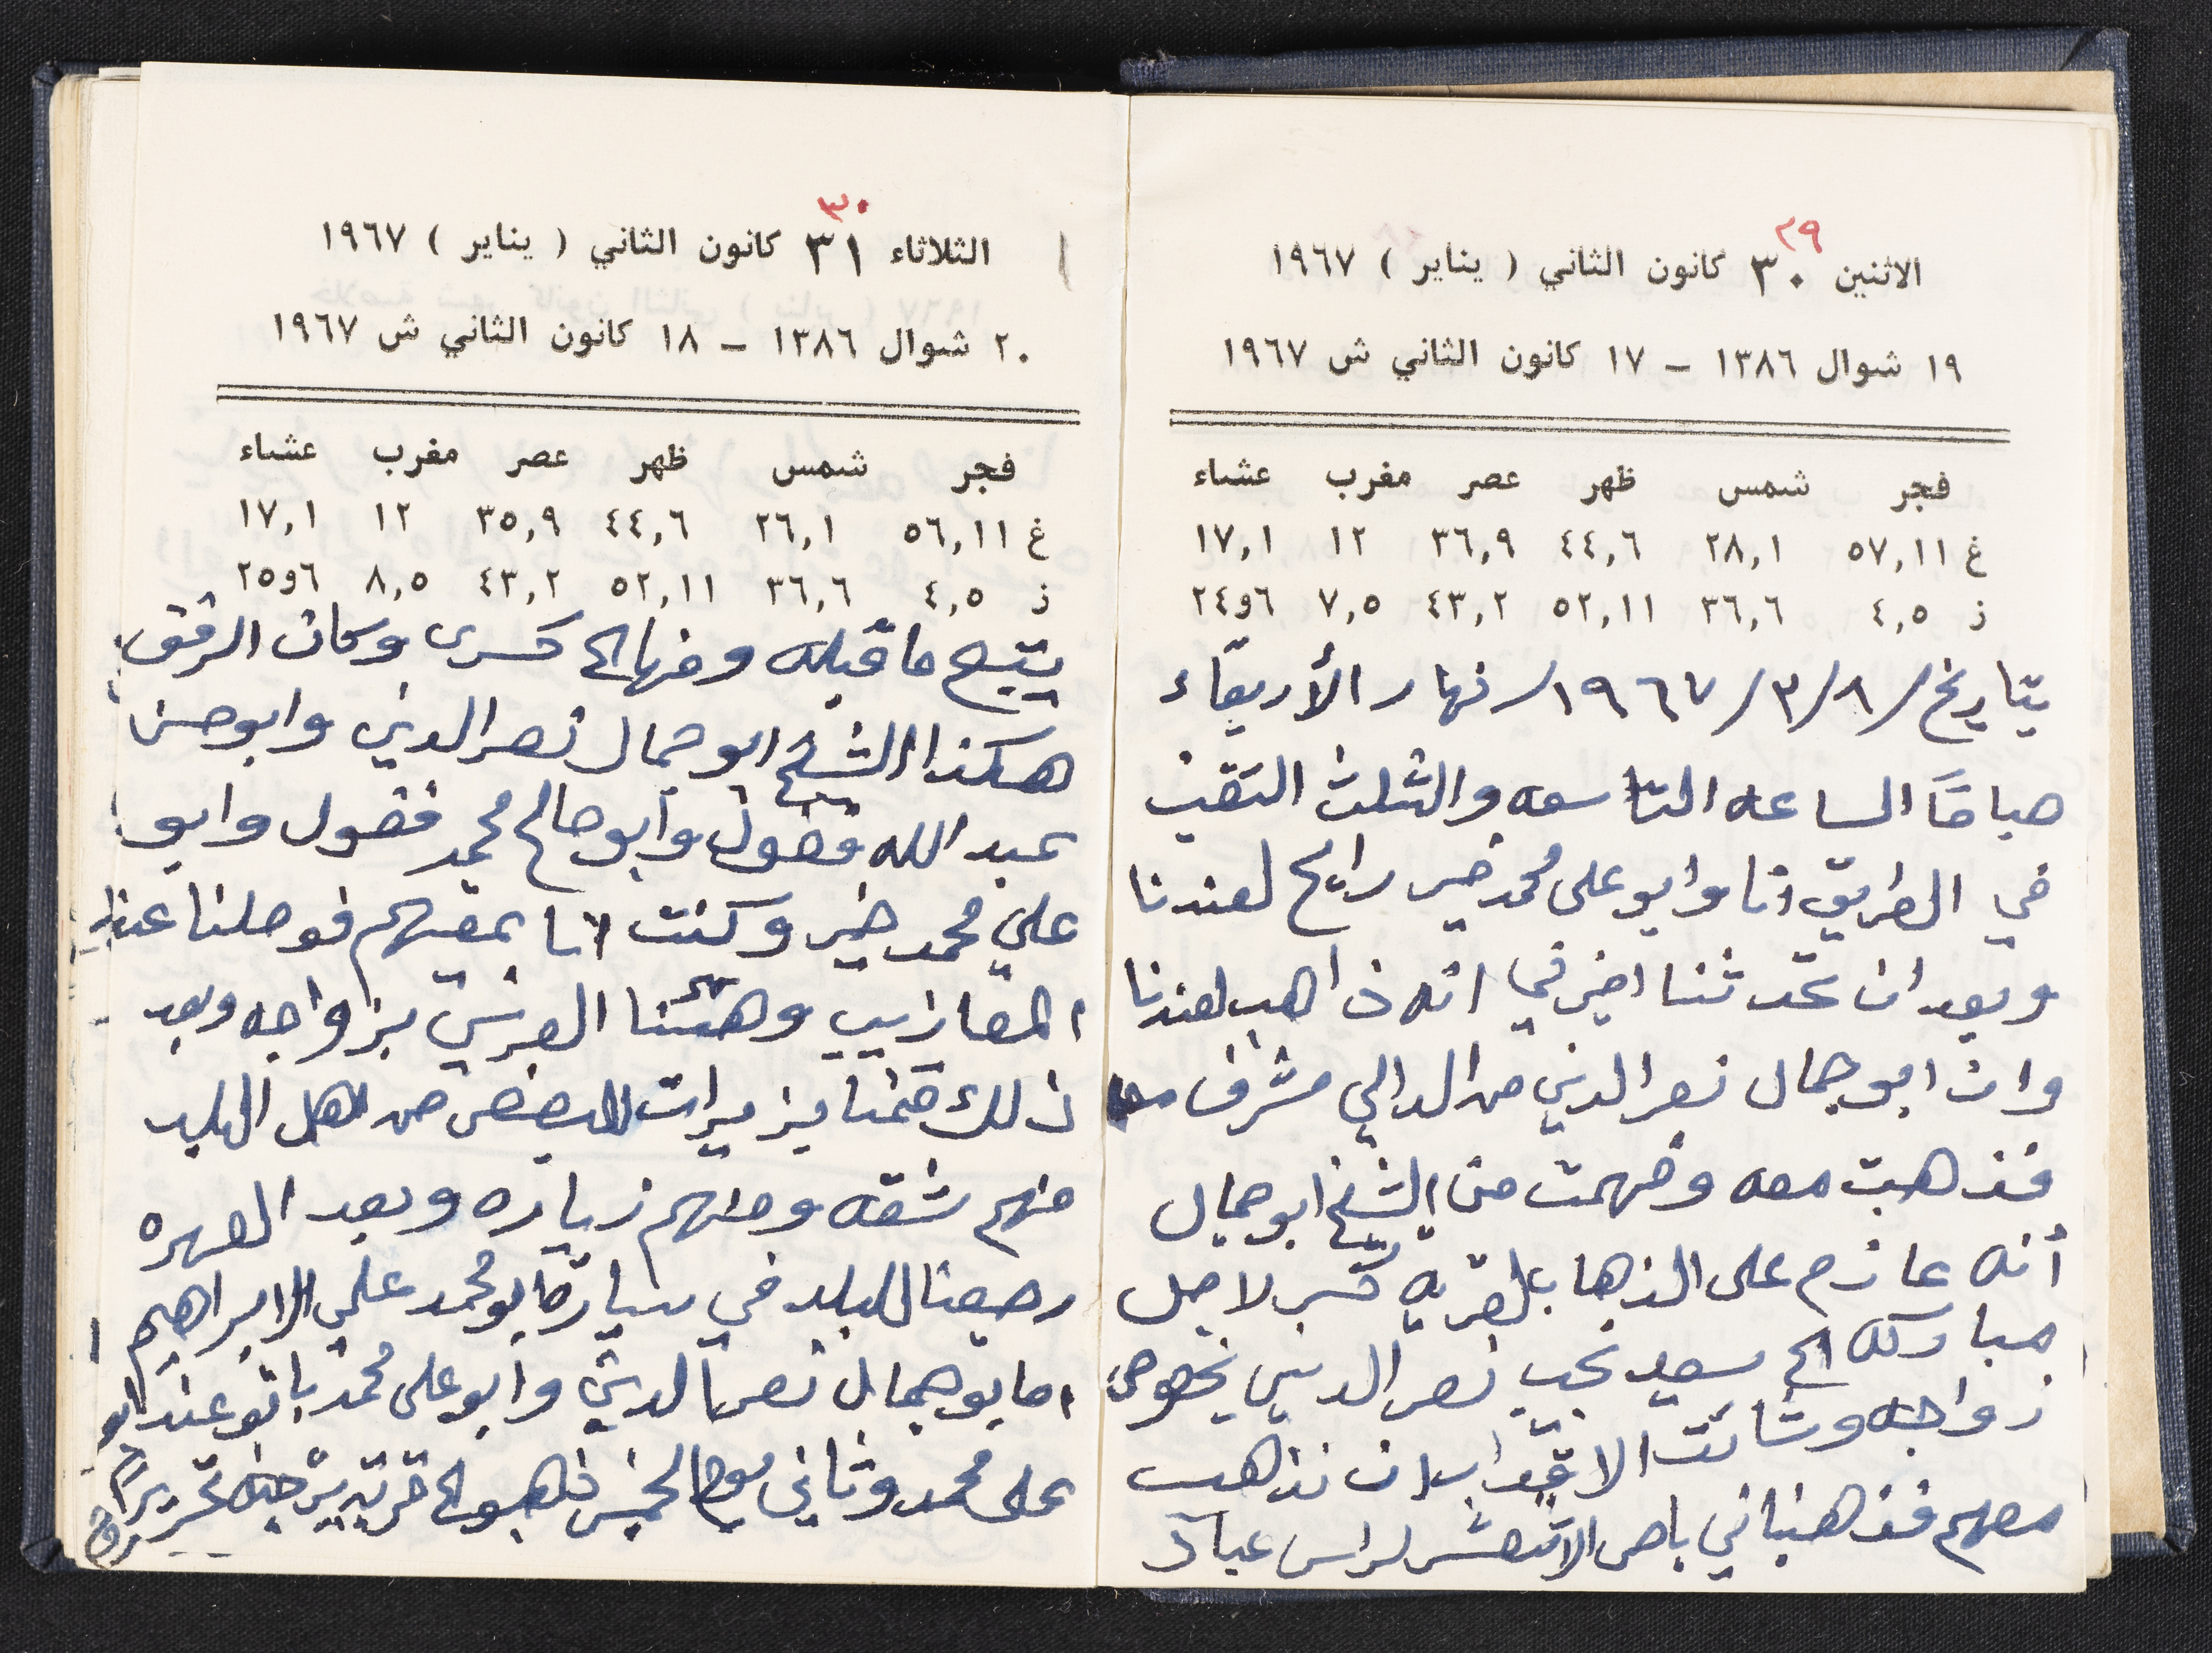 ٢٩
الاثنين ٣٠ كانون الثاني ( يناير ) ١٩٦٧
١٩ شوال ١٣٨٦ - ١٧ كانون الثاني ش ١٩٦٧
فجر شمس ظهر عصر مغرب عشاء
غ ٥٧,١١ ٢٨,١ ٤٤,٦ ٣٦,٩ ١٢ ١٧,١
ز ٤,٥ ٣٦,٦ ٥٢,١١ ٤٣,٢ ٧,٥ ٦و٢٤
بتاريخ /٨/٣/١٩٦٧/ نهار الأربعاء
صباحاً الساعه التاسعه والثلث التقيت
في الطريق انا وابو علي محمد خير رايح لعندنا
وبعد ان تحدثنا اخبرني انه ذاهب لعندنا
وان ابو جمال نصر الدين من الدالي مشرف
فذهبت معه وفهمت من الشيخ ابو جمال
أنه عازم على الذهاب لقرية لاجل
مباركه الى سعيد نجيب نصر الدين بخصوص
زواجه وشائت الاقدار ان نذهب
معهم فذهبنا في باص لراس
٣٠
الثلاثاء ٣١ كانون الثاني ( يناير ) ١٩٦٧
٢٠ شوال ١٣٨٦ - ١٨ كانون الثاني ش ١٩٦٧
فجر شمس ظهر عصر مغرب عشاء
غ ٥٦,١١ ٢٦,١ ٤٤,٦ ٣٥,٩ ١٢ ١٧,١
ز ٤,٥ ٣٦,٦ ٥٢,١١ ٤٣,٢ ٨,٥ ٦و٢٥
يتبع ما قبله ومنها الى وكان
هكذا الشيخ ابو جمال نصر الدين وابو حسن
عبد الله فضول وابو صالح محمد فضول وابو
علي محمد خير وكنت انا بمعيتهم فوصلنا عند
المعازيب وهنئنا العريس بزواجه وبعد
ذلك قمنا بزيرات للبعض من اهل البلد
منهم شقه ومنهم زياره وبعد السهره
رجعنا للبلد في سيارة ابو محمد علي الابراهيم
اما بو جمال نصر الدين وابو علي محمد باتو عند ابو
علي محمد وثاني يوم الخميس ذهبو الى قرية